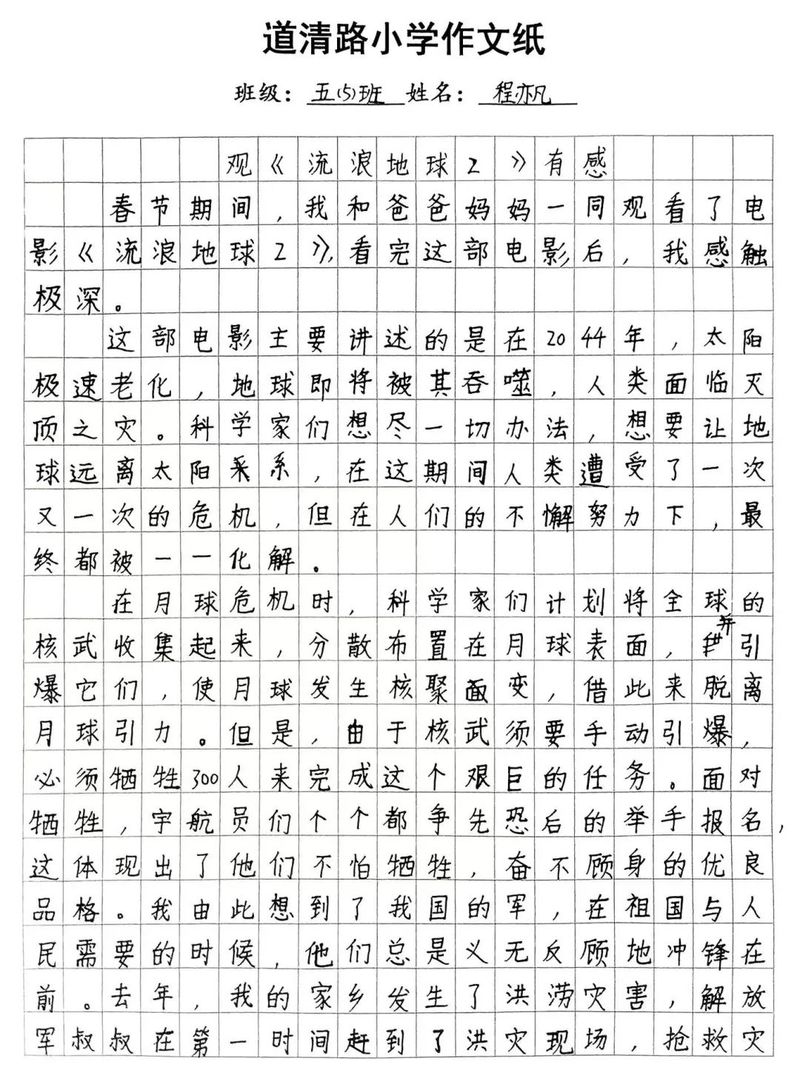 道清路小学作文纸
班级：五(5)班 姓名：程亦凡
观《流浪地球2》有感
春节期间，我和爸爸妈妈一同观看了电
影《流浪地球2》，看完这部电影后，我感触
极深。
这部电影主要讲述的是在2044年，太阳
极速老化，地球即将被其吞噬，人类面临灭
顶之灾。科学家们想尽一切办法，想要让地
球远离太阳系，在这期间人类遭受了一次
又一次的危机，但在人们的不懈努力下，最
终都被一一化解。
在月球危机时，科学家们计划将全球的
核武收集起来，分散布置在月球表面，并引
爆它们，使月球发生核聚变，借此来脱离
月球引力。但是，由于核武须要手动引爆，
必须牺牲300人来完成这个艰巨的任务。面对
牺牲，宇航员们个个都争先恐后的举手报名，
这体现出了他们不怕牺牲，奋不顾身的优良
品格。我由此想到了我国的军，在祖国与人
民需要的时候，他们总是义无反顾地冲锋在
前。去年，我的家乡发生了洪涝灾害，解放
军叔叔在第一时间赶到了洪灾现场，抢救灾